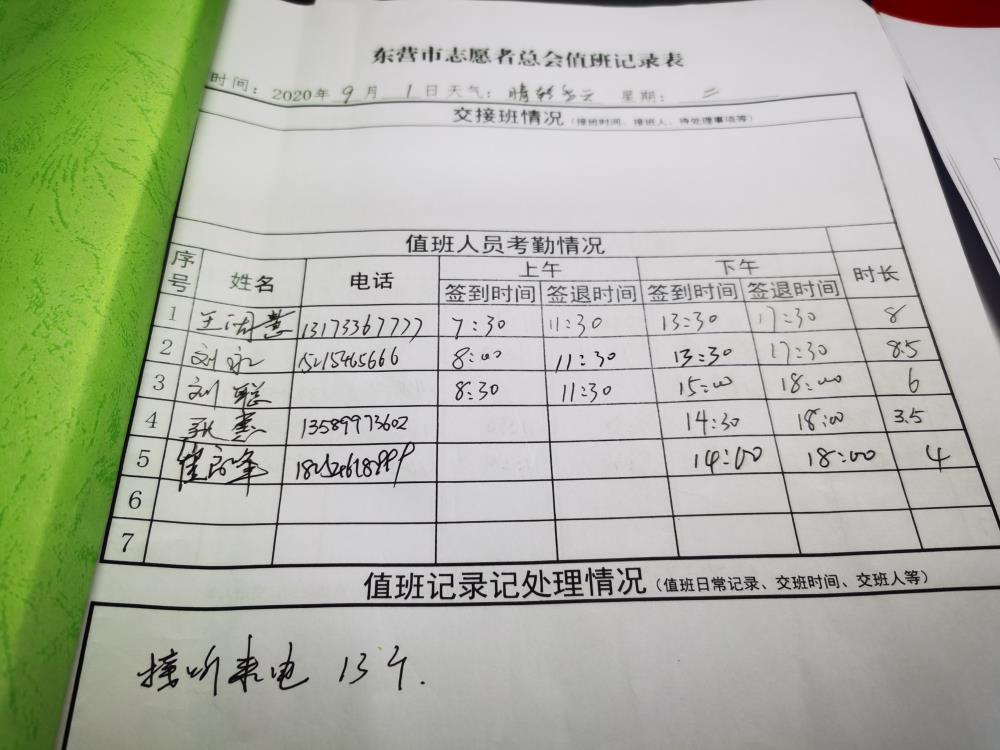 东营市志愿者总会值班记录表
时间: 2020年 9月 1日 天气: 晴转多云 星期: 二
交接班情况 (接班时间、接班人、待处理事项等)
值班人员考勤情况
序号 姓名 电话 上午 下午 时长
签到时间 签退时间 签到时间 签退时间
1 13173367777 7:30 11:30 13:30 17:30 8
2 刘永 15215465666 8:00 11:30 13:30 17:30 8.5
3 刘聪 8:30 11:30 15:00 18:00 6
4 张惠 13589973602 14:30 18:00 3.5
5 14:00 18:00 4
6
7
值班记录记处理情况 (值班日常记录、交班时间、交班人等)
接听来电 13个.